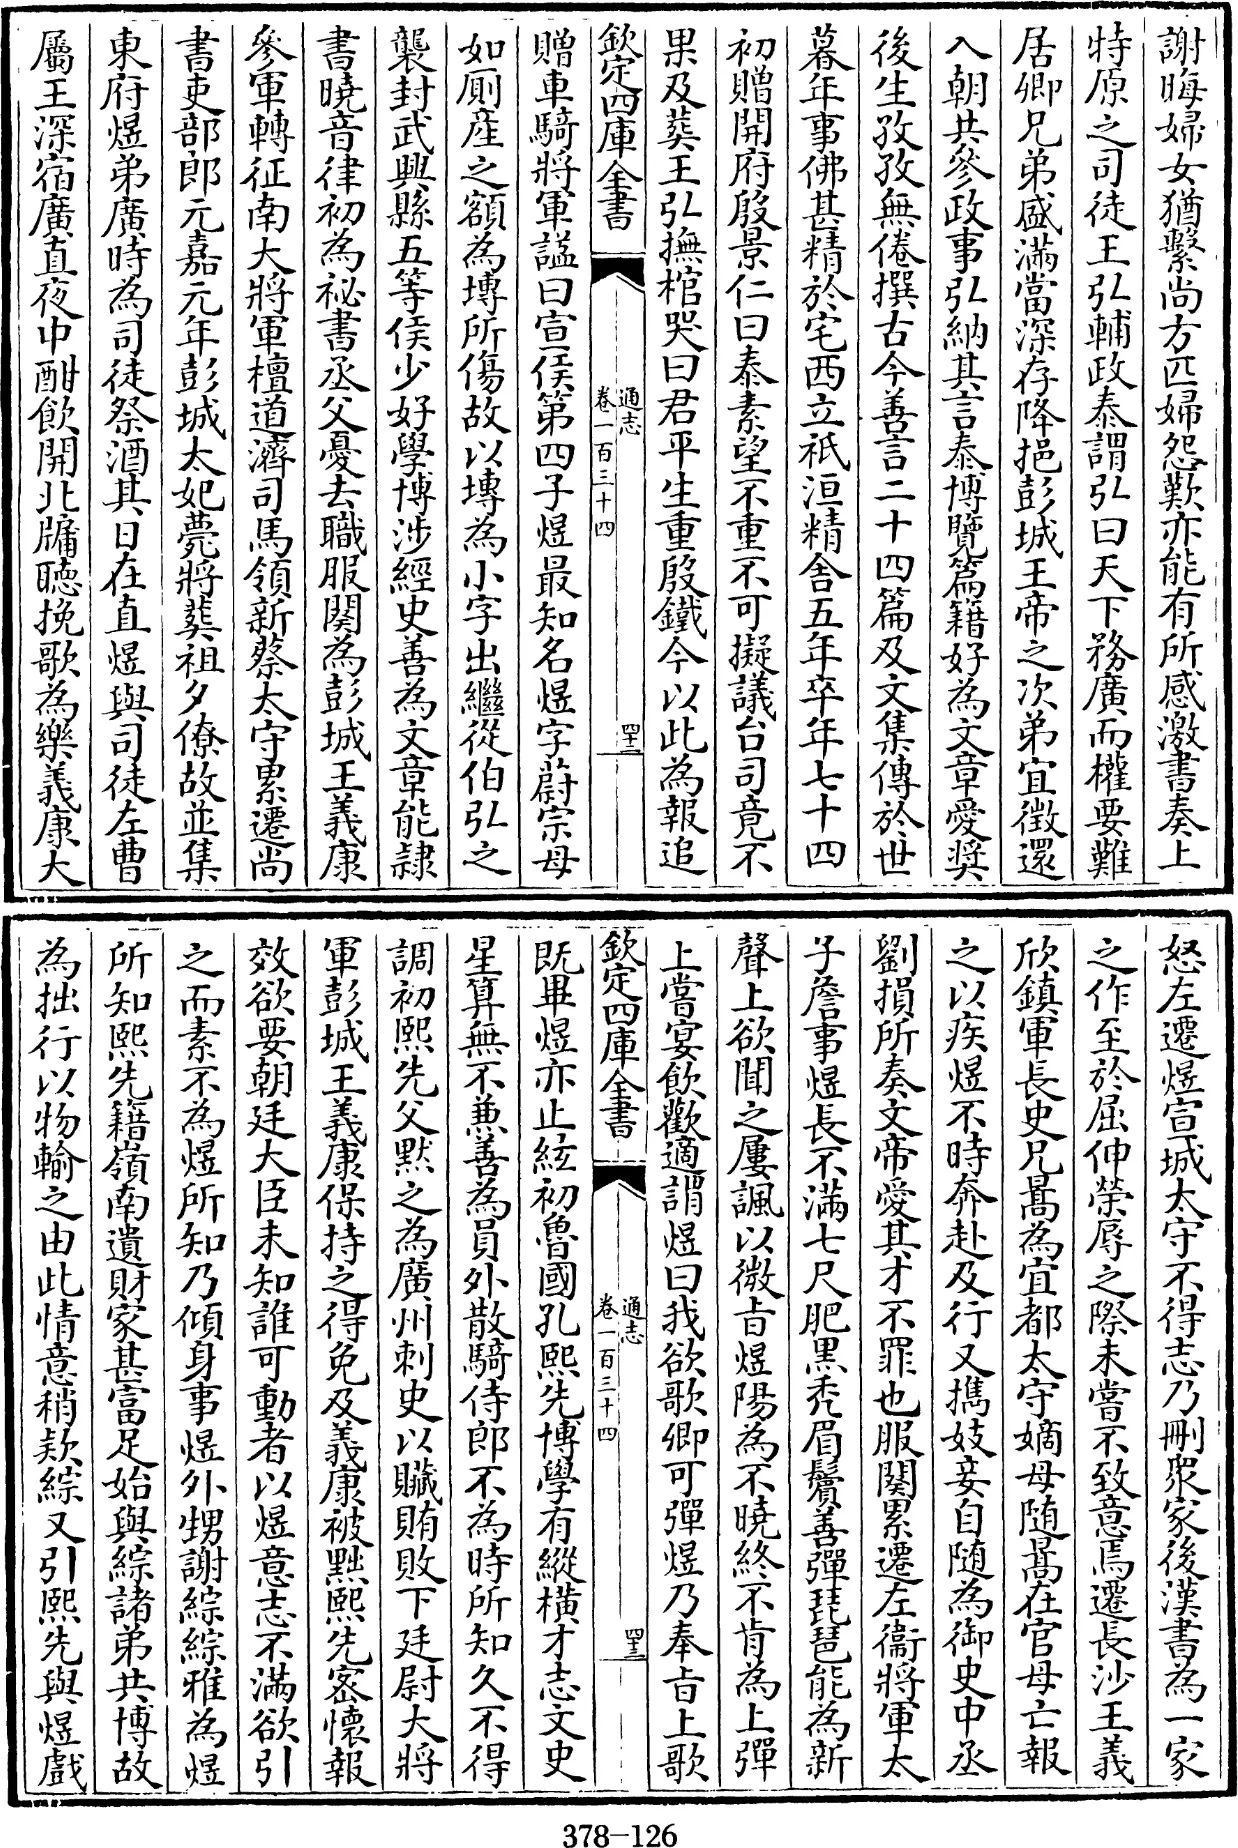 謝晦婦女猶繫尚方匹婦怨歎亦能有所感激書奏上
特原之司徒王弘輔政泰謂弘曰天下務廣而權要難
居卿兄弟盛滿當深存降挹彭城王帝之次弟宜徵還
入朝共參政事弘納其言泰博覽篇籍好為文章愛奬
後生孜孜無倦撰古今善言二十四篇及文集傳於世
暮年事佛甚精於宅西立祇洹精舎五年卒年七十四
初贈開府殷景仁曰泰素望不重不可擬議台司竟不
果及葬王弘撫棺哭曰君平生重殷鐵今以此為報追
欽定四庫全書
通志
卷一百三十四
四十二
贈車騎將軍諡曰宣侯第四子煜最知名煜字蔚宗母
如厠産之額為塼所傷故以塼為小字出繼從伯弘之
襲封武興縣五等侯少好學博涉經史善為文章能隷
書曉音律初為祕書丞父憂去職服闋為彭城王義康
參軍轉征南大將軍檀道濟司馬領新蔡太守累遷尚
書吏部郎元嘉元年彭城太妃薨將葬祖夕僚故並集
東府煜弟廣時為司徒祭酒其日在直煜與司徒左曹
屬王深宿廣直夜中酣飲開北牖聴挽歌為樂義康大
怒左遷煜宣城太守不得志乃刪衆家後漢書為一家
之作至於屈伸榮辱之際未嘗不致意焉遷長沙王義
欣鎮軍長史兄暠為宜都太守嫡母隨暠在官母亡報
之以疾煜不時奔赴及行又攜妓妾自隨為御史中丞
劉損所奏文帝愛其才不罪也服闋累遷左衞將軍太
子詹事煜長不滿七尺肥黒秃眉鬢善彈琵琶能為新
聲上欲聞之屢諷以微㫖煜陽為不曉終不肯為上彈
上嘗宴飲歡適謂煜曰我欲歌卿可彈煜乃奉㫖上歌
欽定四庫全書
通志
卷一百三十四
四十三
既畢煜亦止絃初魯國孔熙先博學有縱横才志文史
星算無不兼善為員外散騎侍郎不為時所知久不得
調初熙先父黙之為廣州刺史以贓賄敗下廷尉大將
軍彭城王義康保持之得免及義康被黜熙先宻懷報
效欲要朝廷大臣未知誰可動者以煜意志不滿欲引
之而素不為煜所知乃傾身事煜外甥謝綜綜雅為煜
所知熙先籍嶺南遺財家甚富足始與綜諸弟共博故
為拙行以物輸之由此情意稍欵綜又引熙先與煜戲
378-126